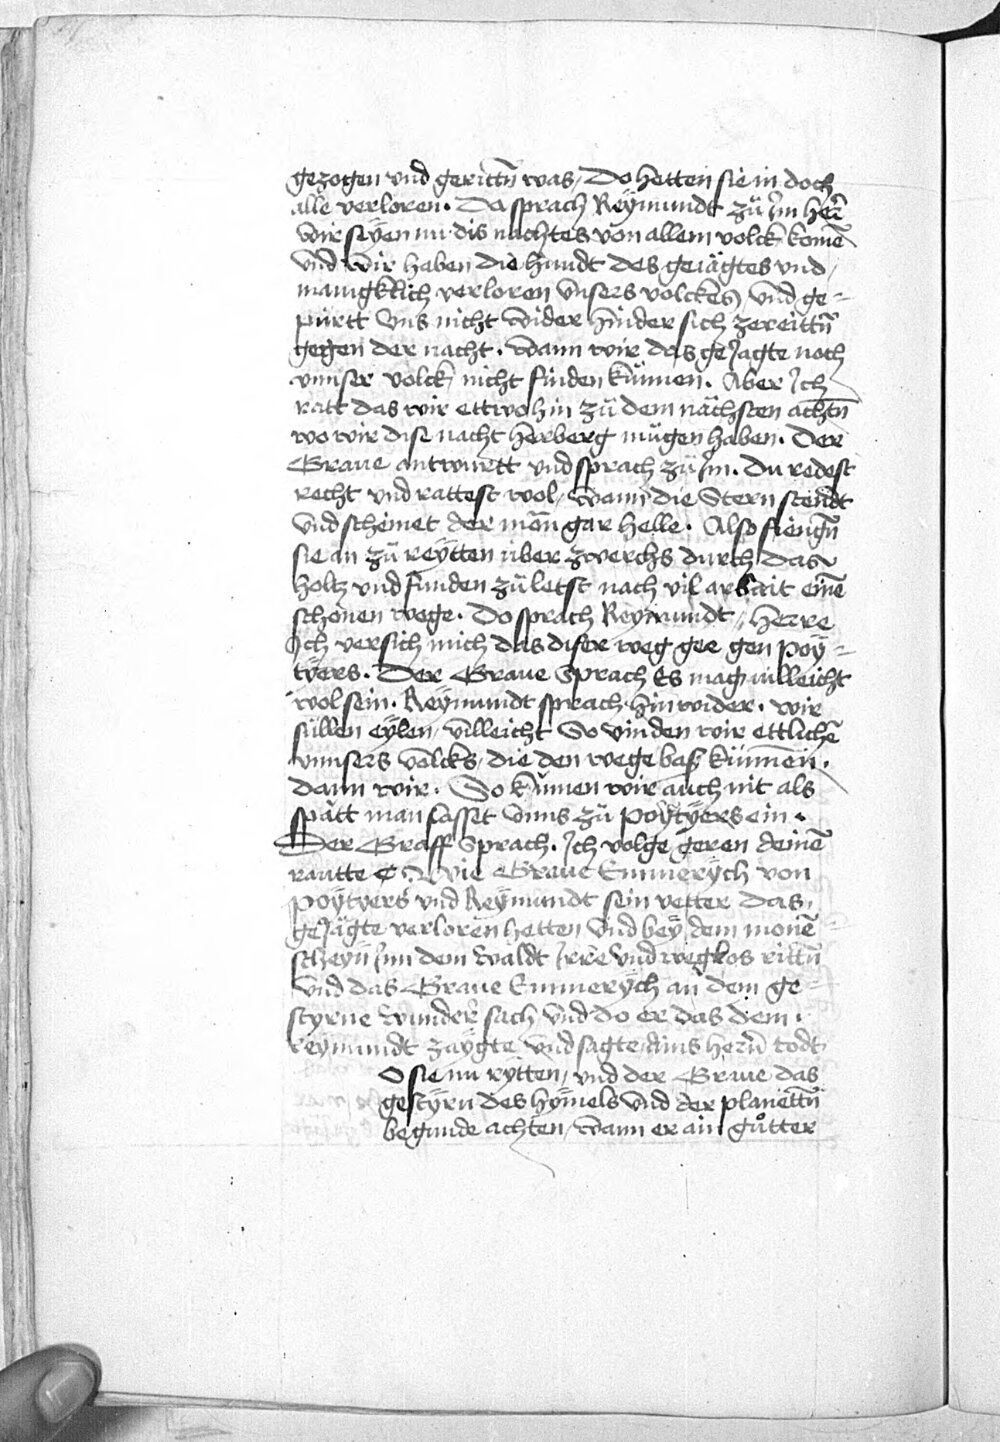 gezogen vnd gerittñ was / Do hetten sie in doch
alle verloren . Da sprach Reÿmundt zů Im her̃
wir seÿen nu dis nachtes von allem volck komē
vnd wir haben die hundt des geiägtes vnd /
manigklich verloren vnsers volckes / vnd ge=
pürtt vns nicht wider hinder sich zereittñ
gegen der nacht . wann wir das geJagte noch
vnnser volck nicht finden künnen . Aber Ich
ratt das wir ettwohin zů dem nächsten achtñ
wo wir dise nacht herberg mügen haben . Der
Graue antwurtt vnd sprach zů Im . Du redest
recht vnd rattest wol / wann die Stern stendt
vnd scheinet der mon gar helle . Also fiengñ
sie an zů reÿtten über zwerchs durch das
holtz vnd funden zů letst nach vil arbait einē
schönen wege . Do sprach Reymundt / herre
Ich versich mich das diser weg gee gen poÿ=
tÿers . Der Graue Sprach Es mag villeicht
wol sein . Reÿmundt sprach hinwider . wir
süllen eÿlen / villeicht So vinden wir ettlichē
vnnsers volcks / die den wege bas künnen .
dann wir . So künnen wir auch nit als
spätt man lasset vnns zů poÿtÿers ein .
Der Graff Sprach . Ich volge geren deinē
rautte ¶ Wie Graue Emmerÿch von
poÿtyers vnd Reÿmundt sein vetter das
geJägte verloren hetten vnd beÿ dem monē
scheÿn Inn dem waldt Irre vnd weglos rittñ
vnd das Graue Emmerÿch an dem ge=
styrne wunder sach vnd do er das dem .
reÿmundt zaÿgte vnd sagte ains herñ todt
O sie nu rÿtten / vnd der Graue das
gestÿrn des hymels vnd der planettñ
begunde achten / wann er ain gůtter